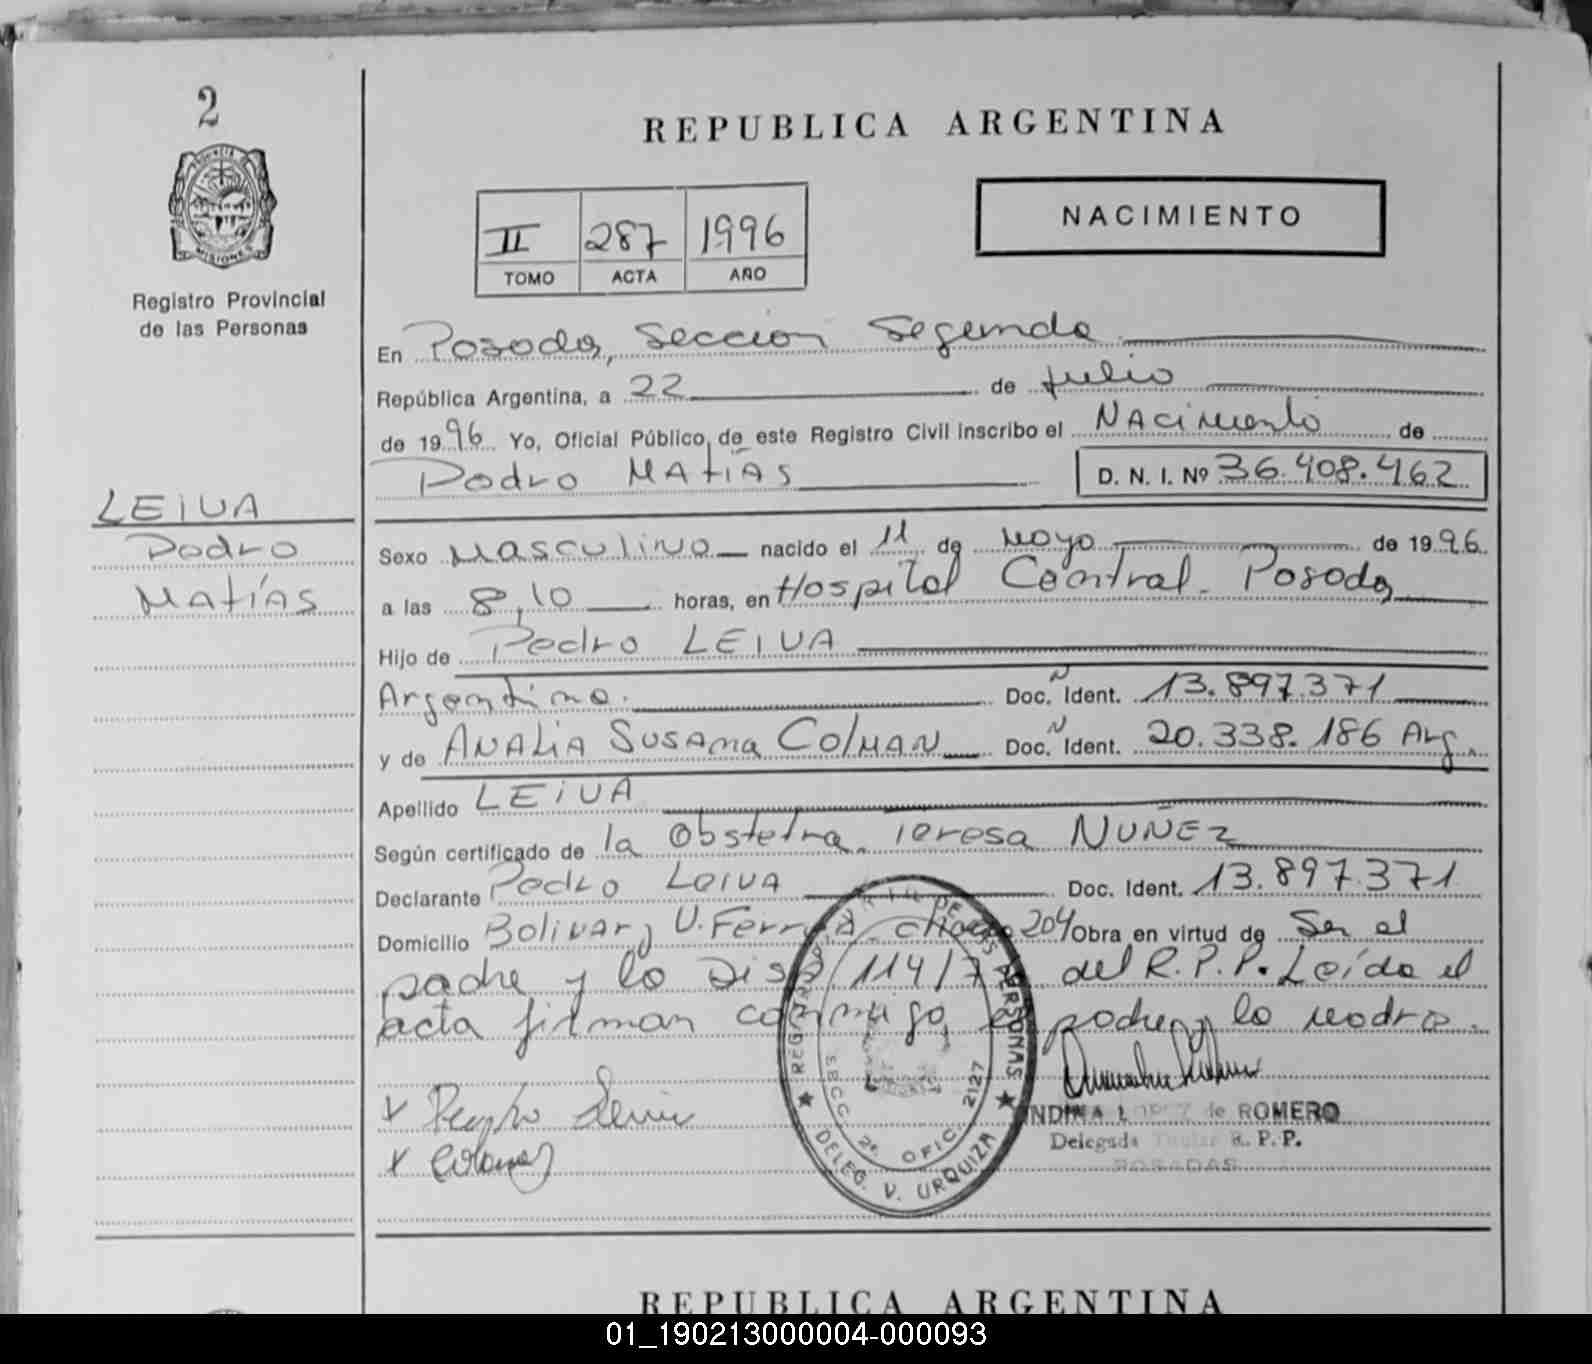 2
REPUBLICA ARGENTINA
PROVINCIA DE MISIONES
Registro Provincial
de las Personas
II 287 1996
TOMO ACTA AÑO
NACIMIENTO
En Posadas, Sección Segunda
República Argentina, a 22 de Julio
de 1996 Yo, Oficial Público, de este Registro Civil inscribo el Nacimiento de
Pedro MATÍAS D. N. I. Nº 36.408.462
LEIVA
Pedro
MATÍAS
Sexo Masculino nacido el 11 de Mayo de 1996
a las 8,10 horas, en Hospital Central. Posadas
Hijo de Pedro LEIVA
Argentino. Doc. N Ident. 13.897.371
y de ANALIA SUSANA COLMAN Doc. N Ident. 20.338.186 Arg.
Apellido LEIVA
Según certificado de la Obstetra. Teresa NUÑEZ
Declarante Pedro LEIVA Doc. Ident. 13.897.371
Domicilio Bolivar y U. 204 Obra en virtud de Ser el
padre y la Disp. 114/7 del R.P.P. Leída el
acta firman conmigo el padre y la madre.
REGISTRO DE LAS PERSONAS
SECC. 2ª OFIC. 2127
DELEG. V. URQUIZA
LOPEZ de ROMERO
Delegada Titular R. P. P.
POSADAS
REPUBLICA ARGENTINA
01_190213000004-000093